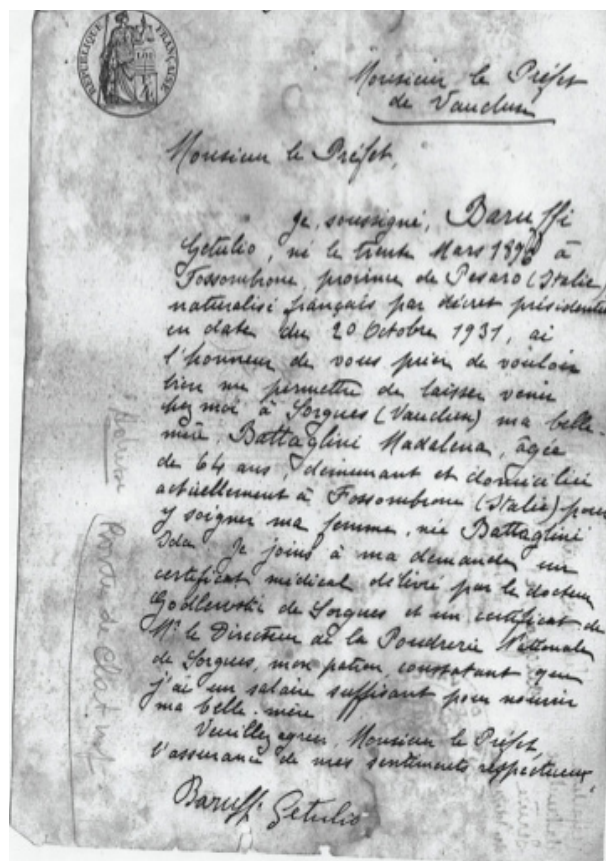 RÉPUBLIQUE FRANÇAISE
LOI
Monsieur le Préfet
de Vaucluse
Monsieur le Préfet,
Je, soussigné, Baruffi
Getulio, né le trente Mars 1896 à
Fossombrone, province de Pesaro (Italie
naturalisé français par décret présidentiel
en date du 20 Octobre 1931, ai
l'honneur de vous prier de vouloir
bien me permettre de laisser venir
chez moi à Sorgues (Vaucluse) ma belle-
mère, Battaglini Madalena, âgée
de 64 ans, demeurant et domiciliée
actuellement à Fossombrone (Italie) pour
y soigner ma femme, née Battaglini
Ida. Je joins à ma demande un
certificat médical délivré par le docteur
Godlewski de Sorgues et un certificat de
Mr le Directeur de la Poudrerie Nationale
de Sorgues, mon patron, constatant que
j'ai un salaire suffisant pour nourrir
ma belle-mère
Veuillez agréer, Monsieur le Préfet,
l'assurance de mes sentiments respectueux,
Baruffi Getulio
Adresse
Route de Chat